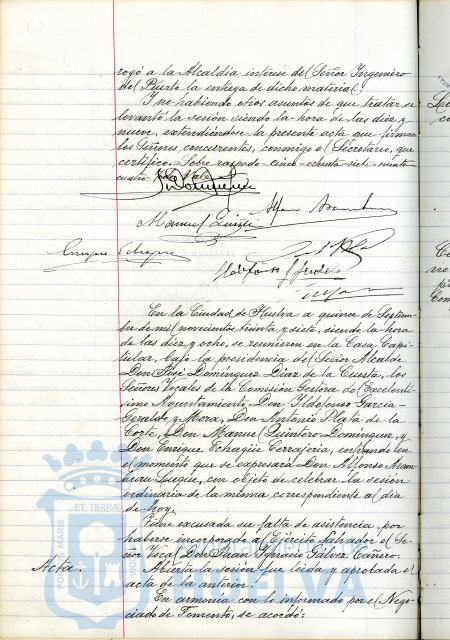 rogó a la Alcaldía interese del Señor Ingeniero
del Puerto la entrega de dicho material.
Y no habiendo otros asuntos de que tratar, se
levantó la sesión siendo la hora de las diez y
nueve, extendiéndose la presente acta que firman
los Señores concurrentes, conmigo el Secretario, que
certifico. Sobre raspado = cinco = ochenta = siete =
cuatro
Manuel Quintero
Enrique Echagüe
En la Ciudad de Huelva a quince de Septiem-
bre de mil novecientos treinta y siete, siendo la hora
de las diez y ocho, se reunieron en la Casa Capi-
tular, bajo la presidencia del Señor Alcalde
Don José Domínguez Díaz de la Cuesta, los
Señores Vocales de la Comisión Gestora del Excelentí-
simo Ayuntamiento, Don Ildefonso García-
Geraldo y Mora, Don Antonio Plata de la
Corte, Don Manuel Quintero Domínguez, y
Don Enrique Echagüe Cerrajería, entrando en
el momento que se expresará Don Alfonso Aram-
buru Luque, con objeto de celebrar la sesión
ordinaria de la misma correspondiente al día
de hoy.
Tiene excusada su falta de asistencia, por
haberse incorporado al Ejército Salvador el Se-
ñor Vocal Don Juan Ignacio Gálvez Cañero.
Acta. Abierta la sesión fue leída y aprobada el
acta de la anterior.
En armonía con lo informado por el Nego-
ciado de Fomento, se acordó:
PORTUS MARIS
ET TERRAE